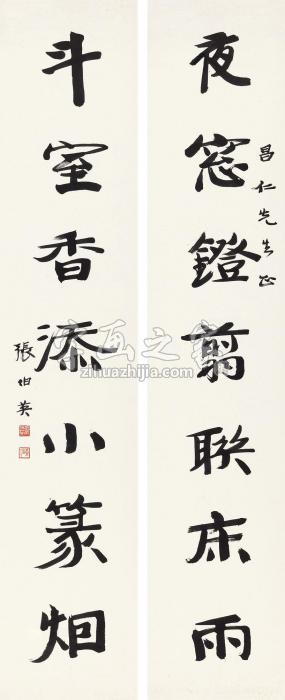 夜窓鐙剪聯床雨
昌仁先生正
斗室香添小篆烟
張伯英
字画之家
zihuazhijia.com